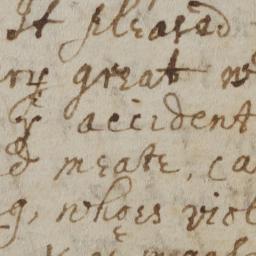 It pleased
ry great w
y accident
d meate, ca
g, whoes viol